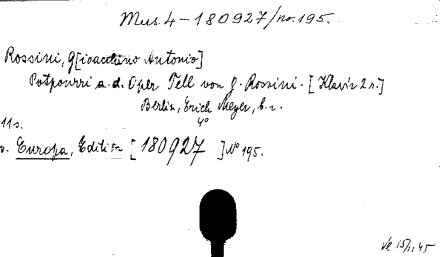 Mus. 4 - 180927/no. 195.
Rossini, G[ioacchino Antonio]
Potpourri a. d. Oper Tell von G. Rossini. [Klavir 2 h.]
Berlin, Erich Meyer,
4°
11 s.
v. Europa, Edition [180927 ] N° 195.